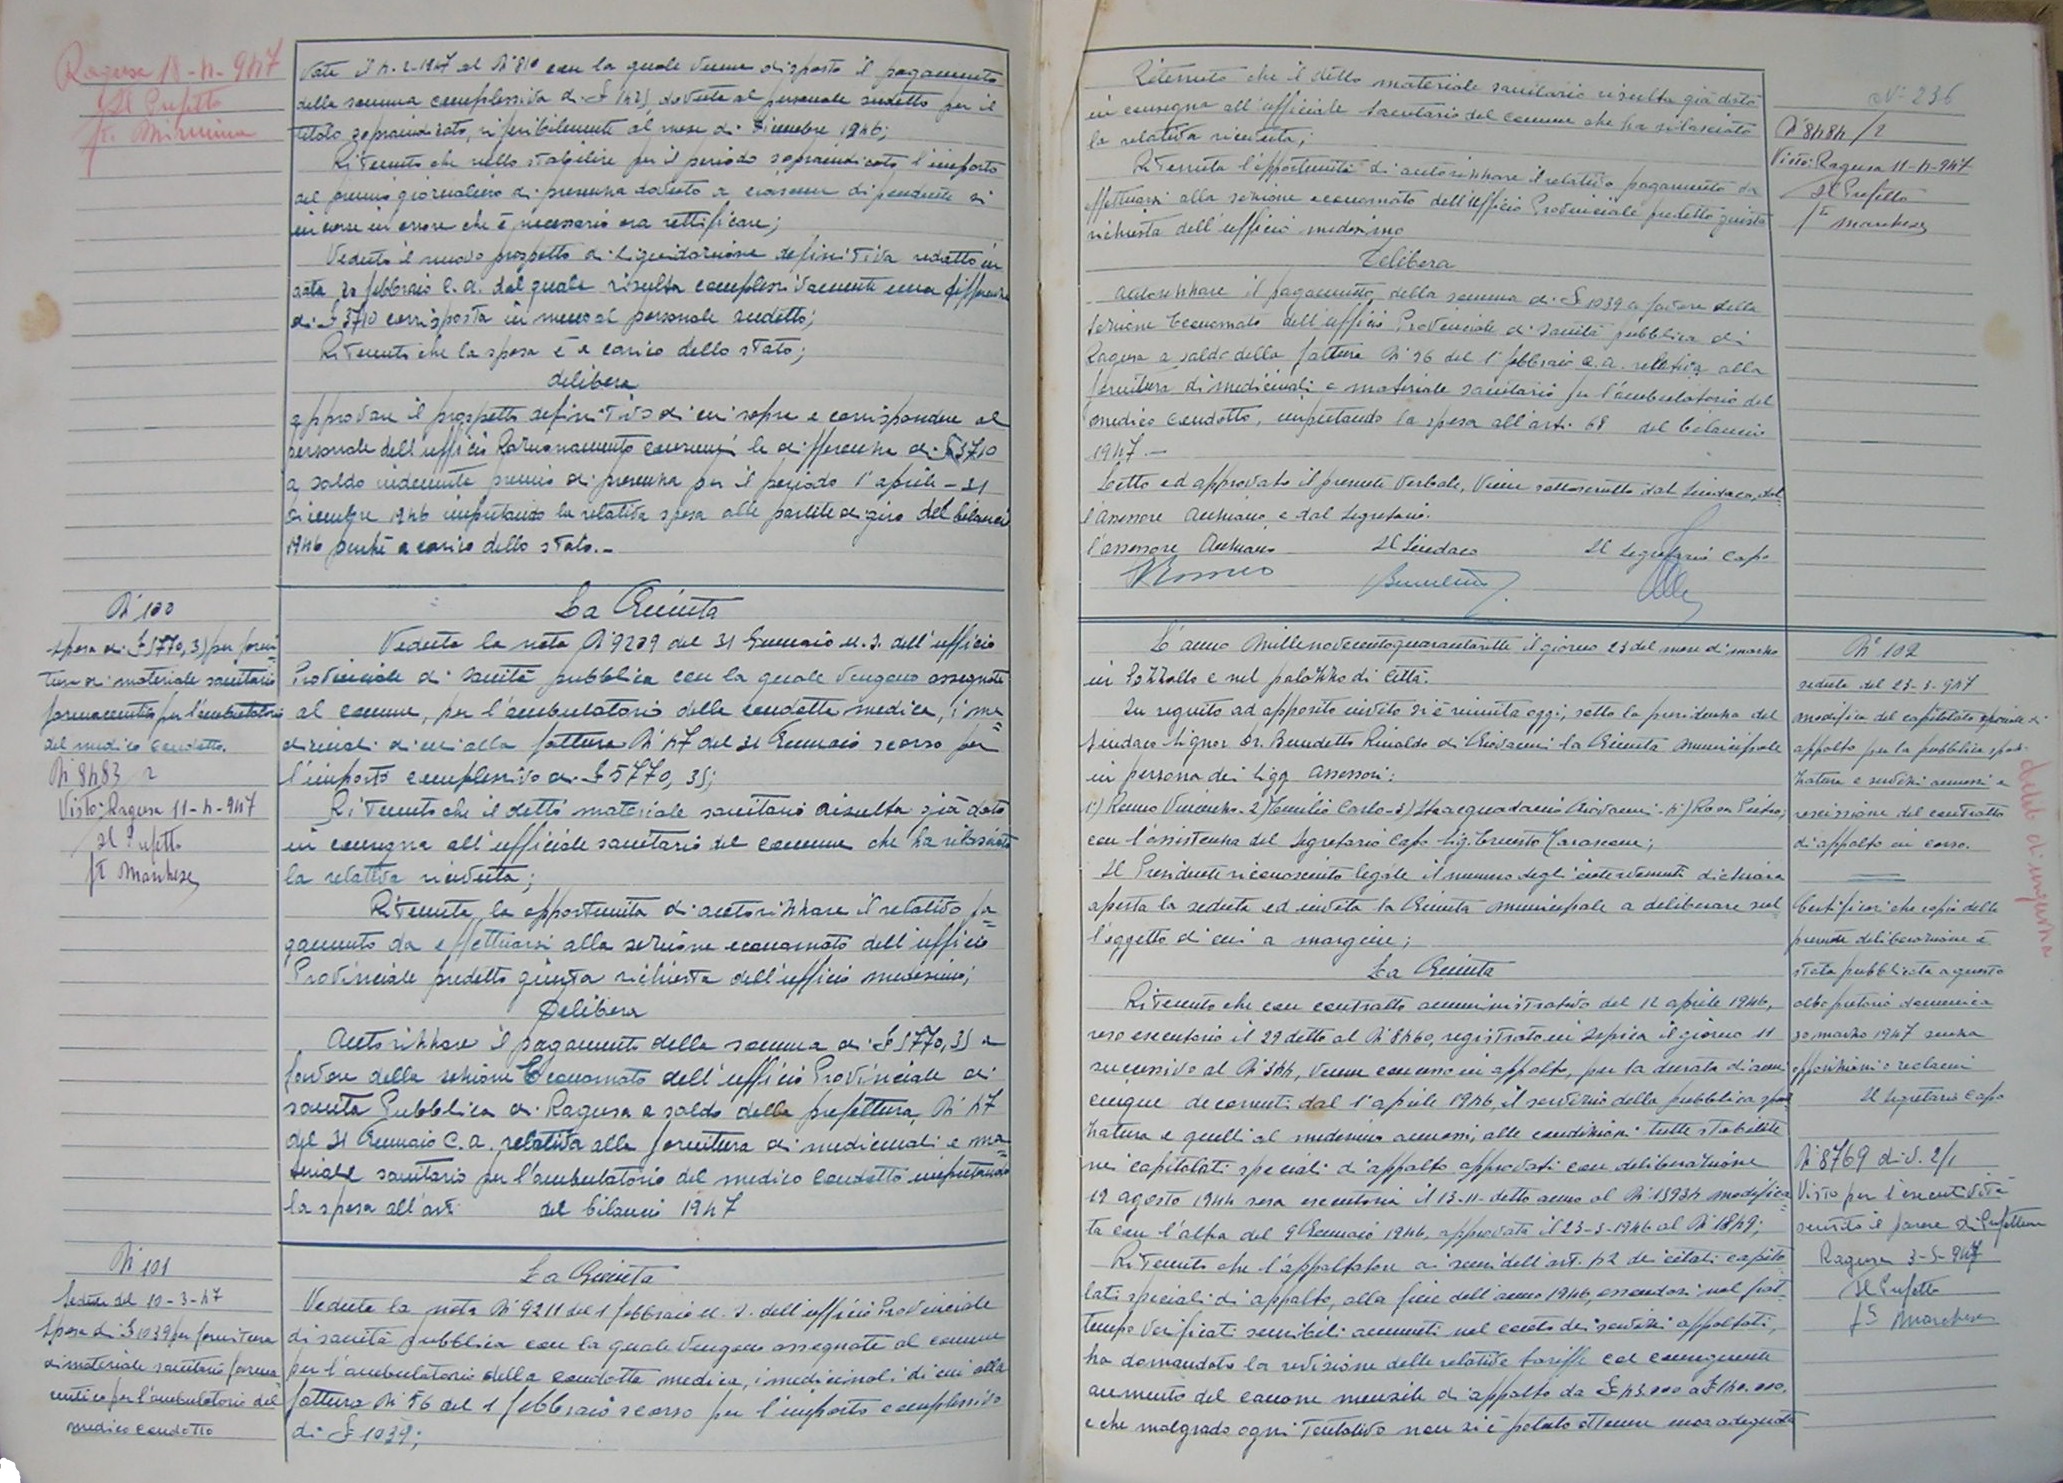 Ragusa 18-4-947
Il Prefetto
vata il 4-2-1947 al N° 810 con la quale venne disposto il pagamento
della somma complessiva di £ dovuta al personale sudetto per il
titolo sopraindicato, riferibilmente al mese di Dicembre 1946;
Ritenuto che nello stabilire per il periodo sopraindicato l'importo
del premio giornaliero di presenza dovuto a ciascun dipendente si
incorse in errore che è necessario ora rettificare;
Veduto il nuovo prospetto di liquidazione definitiva redatto in
data 20 febbraio c.a. dal quale risulta complessivamente una differenza
di £ 3710 corrisposta in meno al personale sudetto;
Ritenuto che la spesa è a carico dello stato;
delibera
approvare il prospetto definitivo di cui sopra e corrispondere al
personale dell'ufficio Razionamento consumi la differenza di £ 3710
a saldo indennità premio di presenza per il periodo 1° aprile - 31
Dicembre 1946 imputando la relativa spesa alle partite di giro del bilancio
1946 perché a carico dello stato.-
N° 100
Spesa di £ 5770,35 per forni=
tura di materiale sanitario
farmaceutico per l'ambulatorio
del medico condotto.
N° 8483 2
Visto: Ragusa 11-4-947
Il Prefetto
ft Marchese
La Giunta
Veduta la nota N° 9209 del 31 Gennaio u.s. dell'ufficio
Provinciale di sanità pubblica con la quale vengono assegnati
al comune, per l'ambulatorio della condotta medica, i me=
dicinali di cui alla fattura N° 47 del 31 Gennaio scorso per
l'importo complessivo di £ 5770,35;
Ritenuto che il detto materiale sanitario risulta già dato
in consegna all'ufficiale sanitario del comune che ha rilasciato
la relativa ricevuta;
Ritenuta la opportunità di autorizzare il relativo pa=
gamento da effettuarsi alla sezione economato dell'ufficio
Provinciale predetto giusta richiesta dell'ufficio medesimo;
Delibera
Autorizzare il pagamento della somma di £ 5770,35 a
favore della sezione Economato dell'ufficio Provinciale di
sanità Pubblica di Ragusa a saldo della prefettura N° 47
del 31 Gennaio c.a. relativa alla fornitura di medicinali e ma=
teriale sanitario per l'ambulatorio del medico condotto imputando
la spesa all'art. del bilancio 1947
N° 101
Seduta del 10-3-47
Spesa di £ 1039 per fornitura
di materiale sanitario farma
ceutico per l'ambulatorio del
medico condotto
La Giunta
Veduta la nota N° 9211 del 1 febbraio u.s. dell'ufficio Provinciale
di sanità pubblica con la quale vengono assegnati al comune
per l'ambulatorio della condotta medica, i medicinali di cui alla
fattura N° 56 del 1 febbraio scorso per l'importo complessivo
di £ 1039;
Ritenuto che il detto materiale sanitario risulta già dato
in consegna all'ufficiale sanitario del comune che ha rilasciato
la relativa ricevuta;
Ritenuta l'opportunità di autorizzare il relativo pagamento da
effettuarsi alla sezione economato dell'Ufficio Provinciale predetto giusta
richiesta dell'ufficio medesimo
Delibera
Autorizzare il pagamento della somma di £ 1039 a favore della
Sezione Economato dell'ufficio Provinciale di Sanità pubblica di
Ragusa a saldo della fattura N° 56 del 1° febbraio c.a. relativa alla
fornitura di medicinali e materiale sanitario per l'ambulatorio del
medico condotto, imputando la spesa all'art. 68 del bilancio
1947.-
Letto ed approvato il presente verbale, viene sottoscritto dal Sindaco, dal
l'assessore Anziano e dal Segretario.
l'assessore Anziano Il Sindaco Il Segretario Capo
N° 236
N° 8484/2
Visto: Ragusa 11-4-947
Il Prefetto
ft Marchese
L'anno Millenovecentoquarantasette il giorno 23 del mese di marzo
in Pozzallo e nel palazzo di Città.
In seguito ad apposito invito si è riunita oggi, sotto la presidenza del
Sindaco Signor Dr. Benedetto Rinaldo di Giovanni la Giunta Municipale
in persona dei Sigg. Assessori:
1°) Romeo Vincenzo - 2) Emilio Carlo - 3) Stracquadanio Giovanni - 4) Rosa Pietro;
con l'assistenza del Segretario Capo Sig. Ernesto Tarascone;
Il Presidente riconosciuto legale il numero degli intervenuti dichiara
aperta la seduta ed invita la Giunta Municipale a deliberare sul
l'oggetto di cui a margine;
La Giunta
Ritenuto che con contratto amministrativo del 12 aprile 1946,
reso esecutorio il 29 detto al N° 8460, registrato in Ispica il giorno 11
successivo al N° 344, venne concesso in appalto, per la durata di anni
cinque decorrenti dal 1° aprile 1946, il servizio della pubblica spaz
zatura e quelli al medesimo annessi, alle condizioni tutte stabilite
nei capitolati speciali d'appalto approvati con deliberazione
19 agosto 1944 resa esecutoria il 13-11-detto anno al N° 15934 modifica
ta con l'altra del 9 Gennaio 1946, approvata il 23-3-1946 al N° 1849;
Ritenuto che l'appaltatore ai sensi dell'art. 42 dei citati capito
lati speciali di appalto, alla fine dell'anno 1946, essendosi nel frat=
tempo verificati sensibili aumenti nel costo dei servizi appaltati,
ha domandato la revisione delle relative tariffe col conseguente
aumento del canone mensile di appalto da £ 43.000 a £ 140.000.
e che malgrado ogni tentativo non si è potuto ottenere una adeguata
N° 102
seduta del 23-3-947
modifica del capitolato speciale di
appalto per la pubblica spaz-
zatura e servizi annessi e
rescissione del contratto
di appalto in corso.
Certificasi che copia della
presente deliberazione è
stata pubblicata a questo
albo pretorio domenica
30 marzo 1947 senza
opposizioni o reclami
Il Segretario Capo
N° 8769 div. 2/1
Visto per l'esecutività
sentito il parere di Prefettura
Ragusa 3-5-947
Il Prefetto
ft Marchese